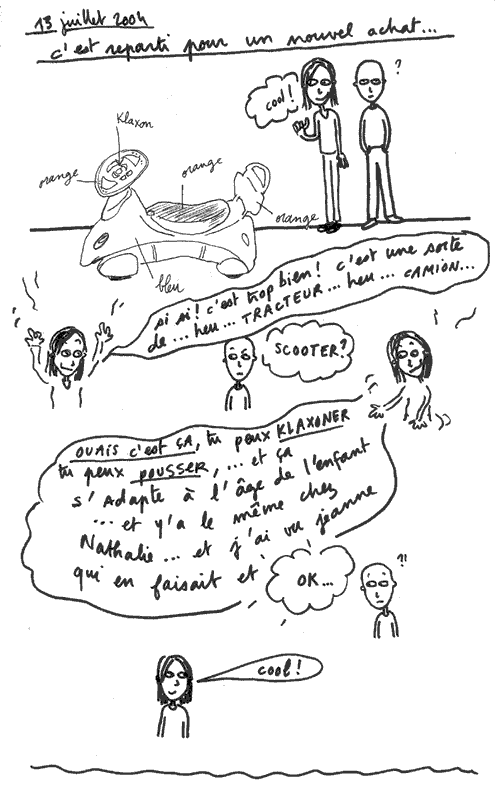 13 juillet 2004
c'est reparti pour un nouvel achat...
cool !
?
Klaxon
orange
orange
orange
bleu
si si ! c'est trop bien ! c'est une sorte
de ... heu... TRACTEUR... heu... CAMION...
SCOOTER ?
OUAIS c'est ÇA, tu peux KLAXONER
tu peux POUSSER, ... et ça
s'adapte à l'âge de l'enfant
... et y'a le même chez
Nathalie... et j'ai vu jeanne
qui en faisait et
OK...
?!
cool !